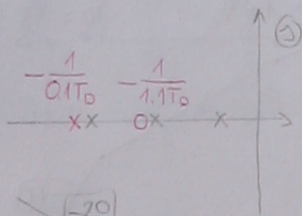 -1/0.1T_D -1/1.1T_D
x x o x x
-20